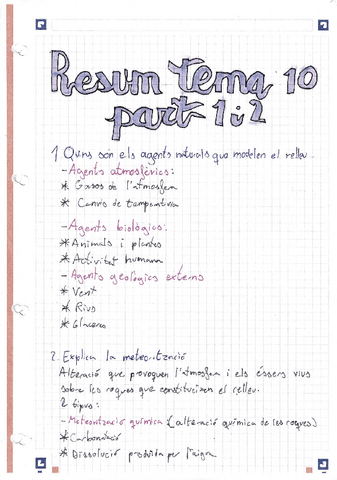 Resum tema 10
part 1 i 2
1 Quins són els agents naturals que modelen el relleu.
- Agents atmosfèrics:
* Gasos de l'atmosfera
* Canvis de temperatura
- Agents biològics:
* Animals i plantes
* Activitat humana
- Agents geològics externs
* Vent
* Rius
* Glaceres
2. Explica la meteorització
Alteració que provoquen l'atmosfera i els éssers vius
sobre les roques que constitueixen el relleu.
2 tipus:
- Meteorització química (alteració química de les roques)
* Carbonatació
* Dissolució produïda per l'aigua